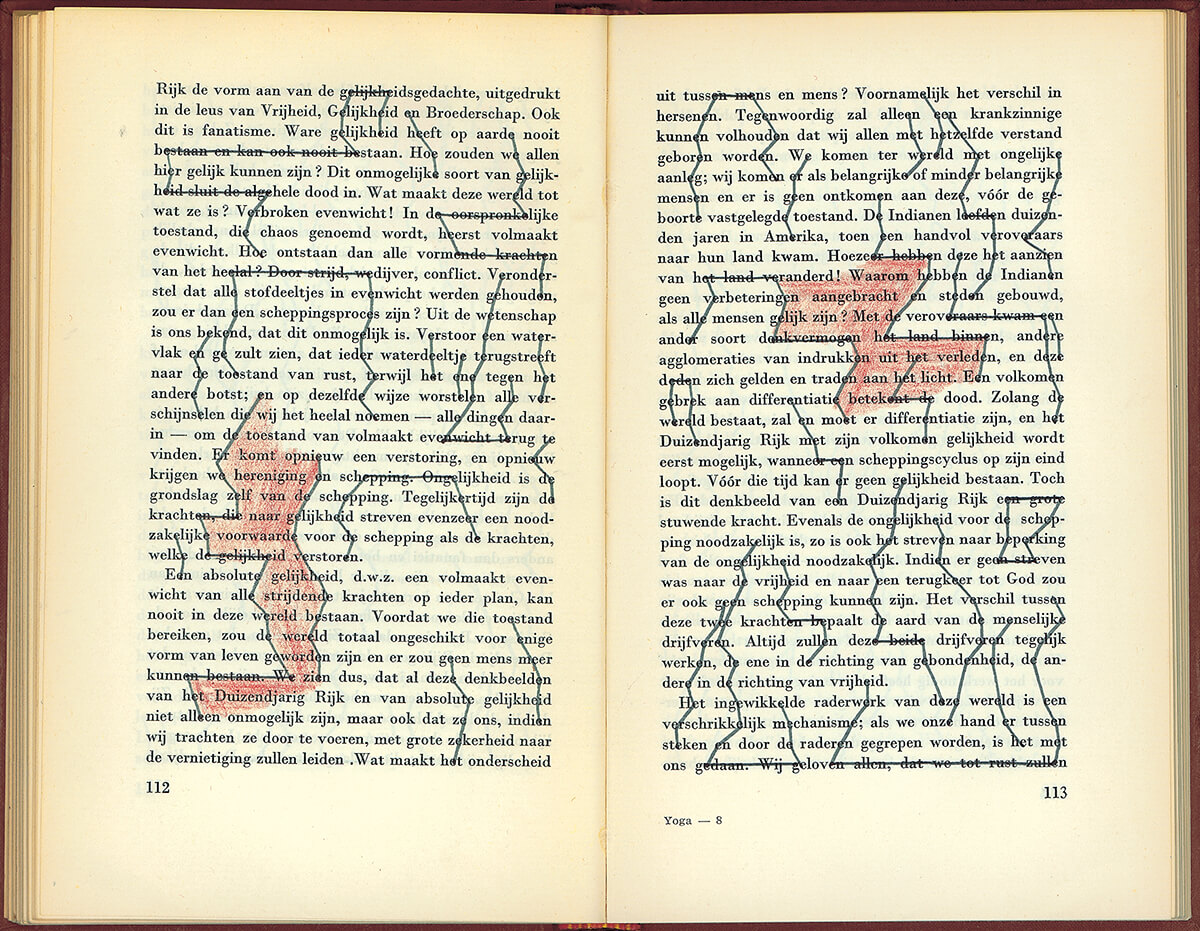 Rijk de vorm aan van de gelijkheidsgedachte, uitgedrukt
in de leus van Vrijheid, Gelijkheid en Broederschap. Ook
dit is fanatisme. Ware gelijkheid heeft op aarde nooit
bestaan en kan ook nooit bestaan. Hoe zouden we allen
hier gelijk kunnen zijn? Dit onmogelijke soort van gelijk-
heid sluit de algehele dood in. Wat maakt deze wereld tot
wat ze is? Verbroken evenwicht! In de oorspronkelijke
toestand, die chaos genoemd wordt, heerst volmaakt
evenwicht. Hoe ontstaan dan alle vormende krachten
van het heelal? Door strijd, wedijver, conflict. Veronder-
stel dat alle stofdeeltjes in evenwicht werden gehouden,
zou er dan een scheppingsproces zijn? Uit de wetenschap
is ons bekend, dat dit onmogelijk is. Verstoor een water-
vlak en ge zult zien, dat ieder waterdeeltje terugstreeft
naar de toestand van rust, terwijl het ene tegen het
andere botst; en op dezelfde wijze worstelen alle ver-
schijnselen die wij het heelal noemen — alle dingen daar-
in — om de toestand van volmaakt evenwicht terug te
vinden. Er komt opnieuw een verstoring, en opnieuw
krijgen we hereniging en schepping. Ongelijkheid is de
grondslag zelf van de schepping. Tegelijkertijd zijn de
krachten, die naar gelijkheid streven evenzeer een nood-
zakelijke voorwaarde voor de schepping als de krachten,
welke de gelijkheid verstoren.
Een absolute gelijkheid, d.w.z. een volmaakt even-
wicht van alle strijdende krachten op ieder plan, kan
nooit in deze wereld bestaan. Voordat we die toestand
bereiken, zou de wereld totaal ongeschikt voor enige
vorm van leven geworden zijn en er zou geen mens meer
kunnen bestaan. We zien dus, dat al deze denkbeelden
van het Duizendjarig Rijk en van absolute gelijkheid
niet alleen onmogelijk zijn, maar ook dat ze ons, indien
wij trachten ze door te voeren, met grote zekerheid naar
de vernietiging zullen leiden .Wat maakt het onderscheid
112
uit tussen mens en mens? Voornamelijk het verschil in
hersenen. Tegenwoordig zal alleen een krankzinnige
kunnen volhouden dat wij allen met hetzelfde verstand
geboren worden. We komen ter wereld met ongelijke
aanleg; wij komen er als belangrijke of minder belangrijke
mensen en er is geen ontkomen aan deze, vóór de ge-
boorte vastgelegde toestand. De Indianen leefden duizen-
den jaren in Amerika, toen een handvol veroveraars
naar hun land kwam. Hoezeer hebben deze het aanzien
van het land veranderd! Waarom hebben de Indianen
geen verbeteringen aangebracht en steden gebouwd,
als alle mensen gelijk zijn? Met de veroveraars kwam een
ander soort denkvermogen het land binnen, andere
agglomeraties van indrukken uit het verleden, en deze
deden zich gelden en traden aan het licht. Een volkomen
gebrek aan differentiatie betekent de dood. Zolang de
wereld bestaat, zal en moet er differentiatie zijn, en het
Duizendjarig Rijk met zijn volkomen gelijkheid wordt
eerst mogelijk, wanneer een scheppingscyclus op zijn eind
loopt. Vóór die tijd kan er geen gelijkheid bestaan. Toch
is dit denkbeeld van een Duizendjarig Rijk een grote
stuwende kracht. Evenals de ongelijkheid voor de schep-
ping noodzakelijk is, zo is ook het streven naar beperking
van de ongelijkheid noodzakelijk. Indien er geen streven
was naar de vrijheid en naar een terugkeer tot God zou
er ook geen schepping kunnen zijn. Het verschil tussen
deze twee krachten bepaalt de aard van de menselijke
drijfveren. Altijd zullen deze beide drijfveren tegelijk
werken, de ene in de richting van gebondenheid, de an-
dere in de richting van vrijheid.
Het ingewikkelde raderwerk van deze wereld is een
verschrikkelijk mechanisme; als we onze hand er tussen
steken en door de raderen gegrepen worden, is het met
ons gedaan. Wij geloven allen, dat we tot rust zullen
113
Yoga — 8